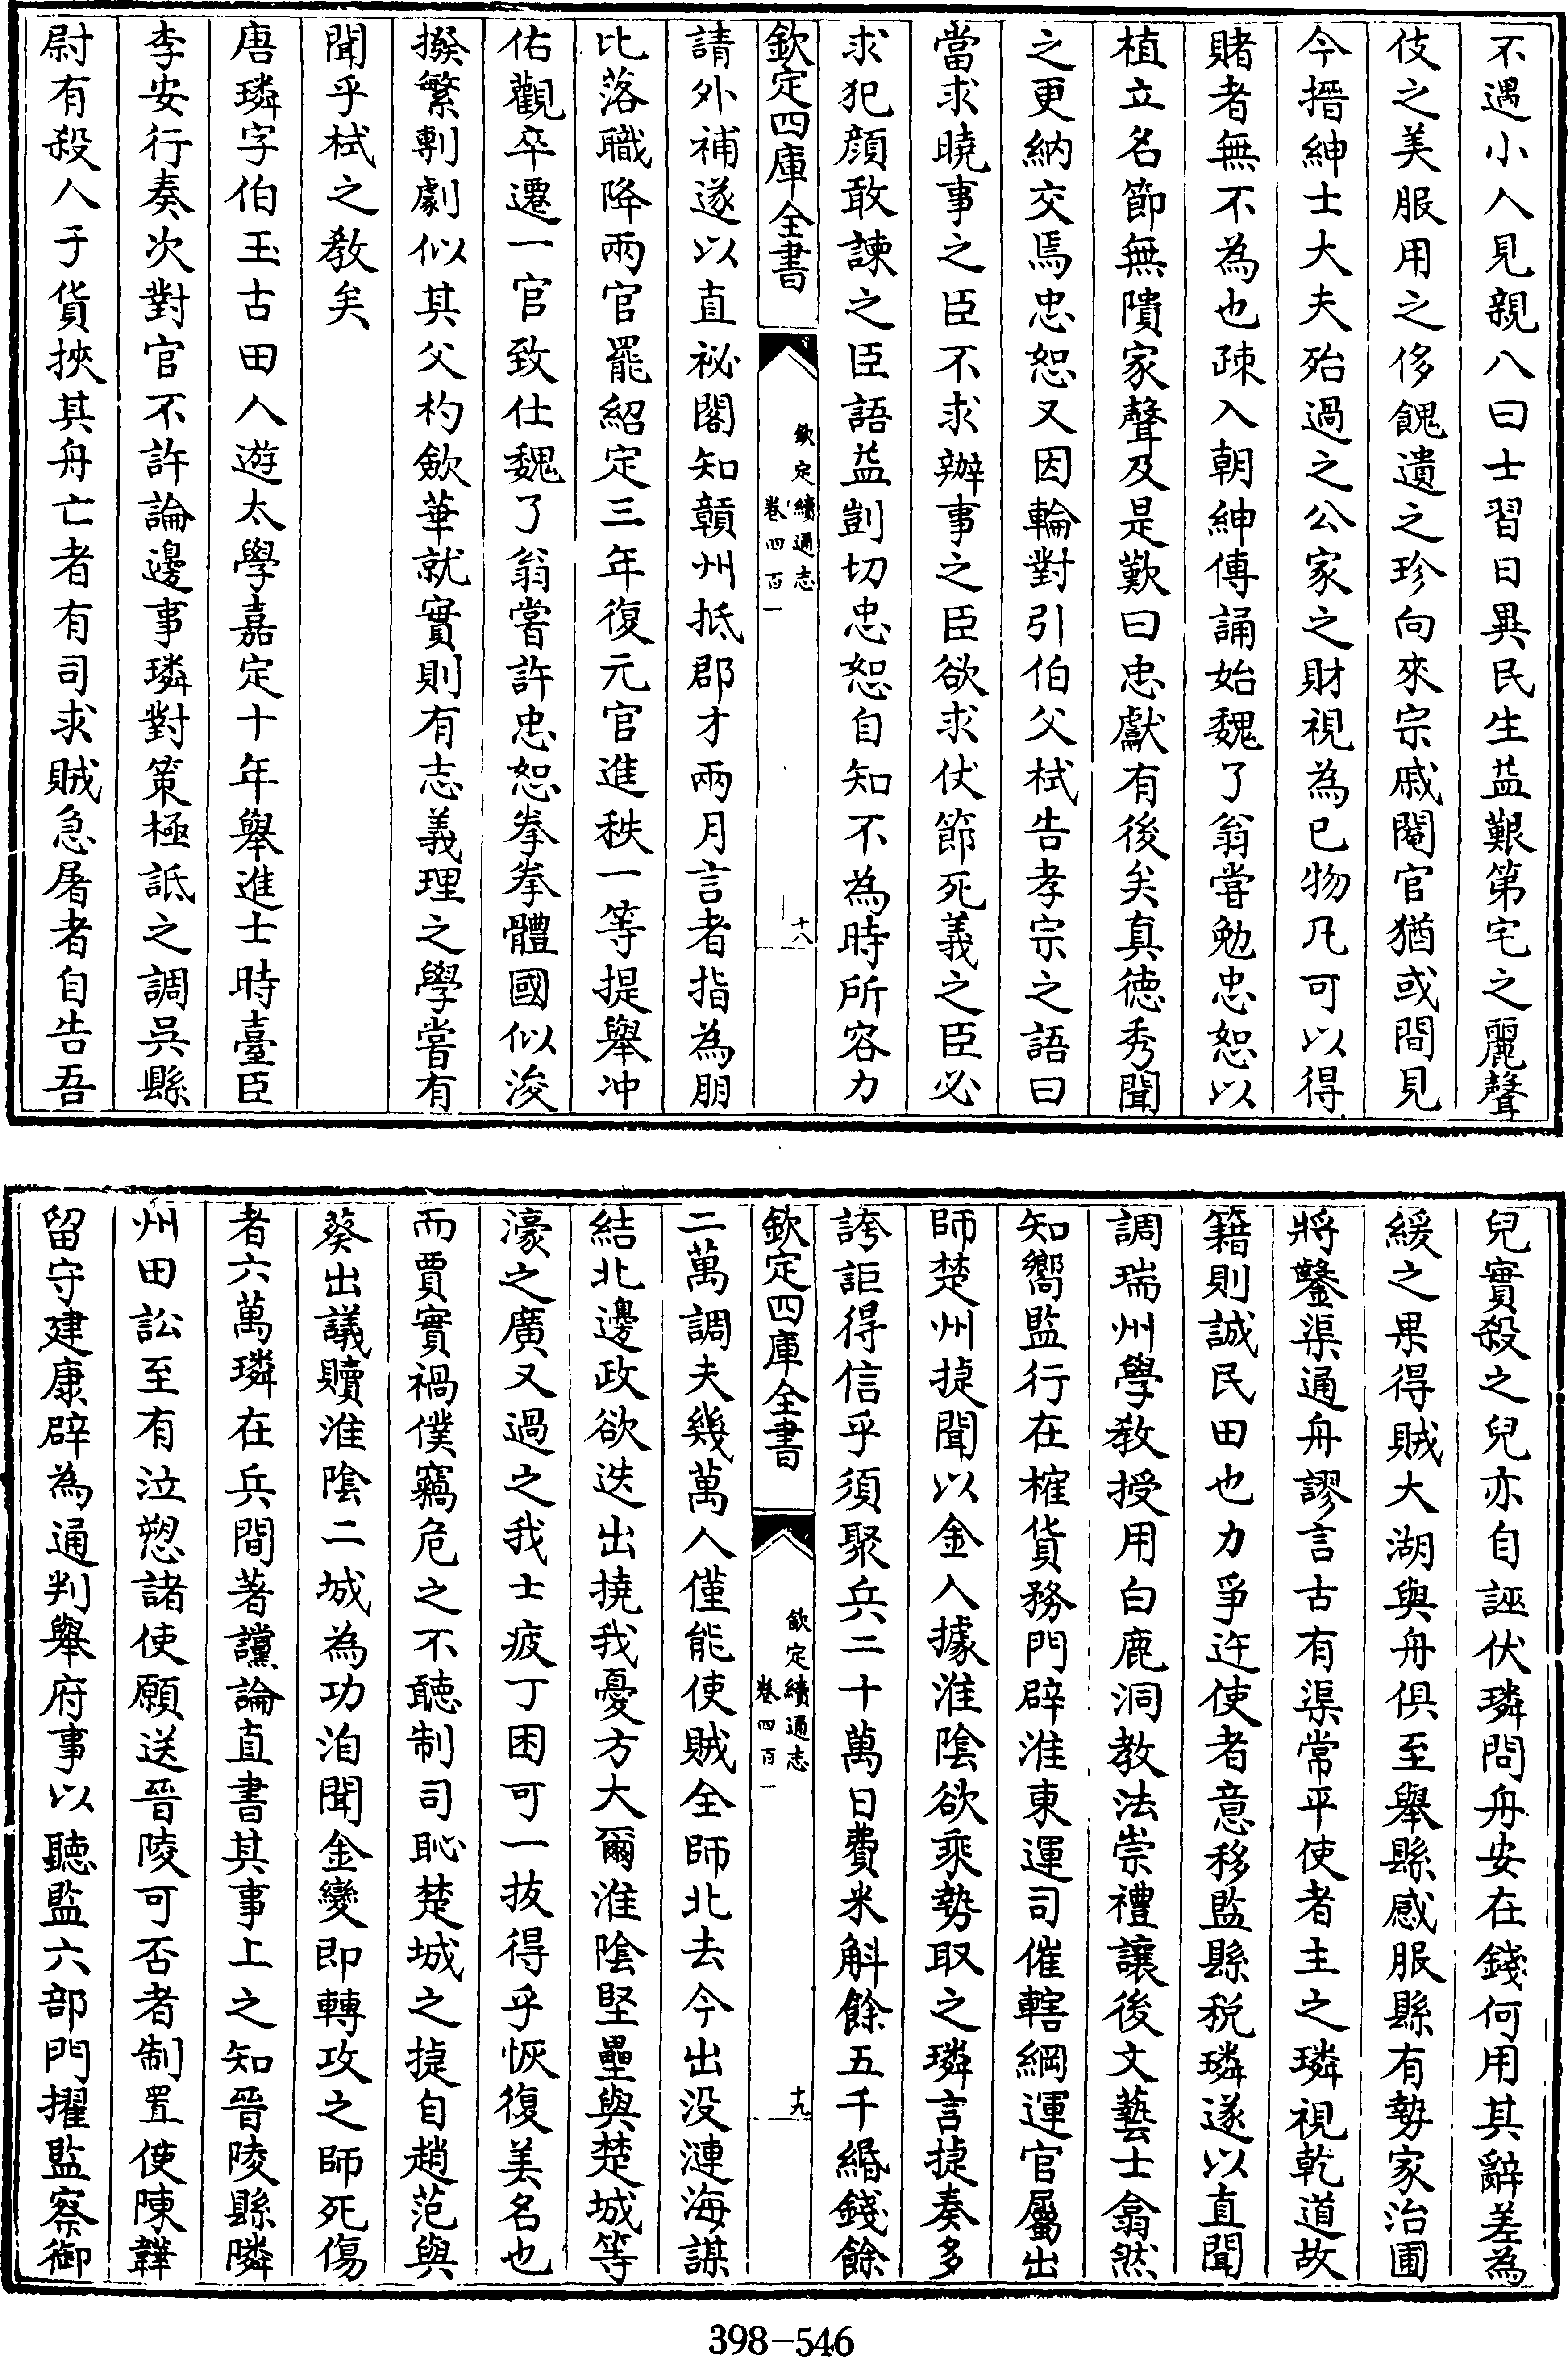 不遇小人見親八曰士習日異民生益艱第宅之麗聲
伎之美服用之侈餽遺之珍向來宗戚閹官猶或間見
今搢紳士大夫殆過之公家之財視為己物凡可以得
賭者無不為也疎入朝紳傳誦始魏了翁嘗勉忠恕以
植立名節無隤家聲及是歎曰忠獻有後矣真徳秀聞
之更納交焉忠恕又因輪對引伯父栻告孝宗之語曰
當求曉事之臣不求辦事之臣欲求仗節死義之臣必
求犯顔敢諫之臣語益剴切忠恕自知不為時所容力
欽定四庫全書
欽定續通志
卷四百一
十八
請外補遂以直祕閣知贑州抵郡才兩月言者指為朋
比落職降兩官罷紹定三年復元官進秩一等提舉冲
佑觀卒遷一官致仕魏了翁嘗許忠恕拳拳體國似浚
撥繁剸劇似其父杓歛華就實則有志義理之學嘗有
聞乎栻之教矣
唐璘字伯玉古田人遊太學嘉定十年舉進士時臺臣
李安行奏次對官不許論邊事璘對策極詆之調吳縣
尉有殺人于貨挾其舟亡者有司求賊急屠者自告吾
兒實殺之兒亦自誣伏璘問舟安在錢何用其辭差為
緩之果得賊大湖與舟俱至舉縣感服縣有勢家治圃
將鑿渠通舟謬言古有渠常平使者主之璘視乾道故
籍則誠民田也力爭迕使者意移監縣税璘遂以直聞
調瑞州學教授用白鹿洞教法崇禮讓後文藝士翕然
知嚮監行在榷貨務門辟淮東運司催轄綱運官屬出
師楚州㨗聞以金人據淮陰欲乘勢取之璘言捷奏多
誇詎得信乎須聚兵二十萬日費米斛餘五千緡錢餘
欽定四庫全書
欽定續通志
卷四百一
十九
二萬調夫幾萬人僅能使賊全師北去今出没漣海謀
結北邊政欲迭出撓我憂方大爾淮陰堅壘與楚城等
濠之廣又過之我士疲丁困可一拔得乎恢復美名也
而賈實禍僕竊危之不聽制司恥楚城之㨗自趙范與
葵出議贖淮陰二城為功洎聞金變即轉攻之師死傷
者六萬璘在兵間著讜論直書其事上之知晉陵縣隣
州田訟至有泣愬諸使願送晉陵可否者制置使陳韡
留守建康辟為通判舉府事以聽監六部門擢監察御
398-546